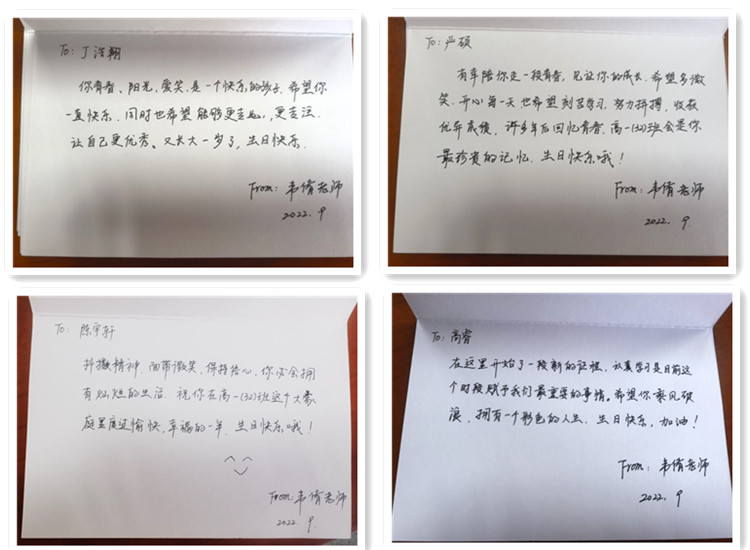 To: 丁浩翔
你青春、阳光、爱笑、是一个快乐的孩子,希望你
一直快乐,同时也希望能够更走心,更专注,
让自己更优秀。又长大一岁了,生日快乐.
From: 韦倩老师
2022. 9
To: 严硕
有幸陪你走一段青春,见证你的成长,希望多微
笑,开心每一天,也希望刻苦学习,努力拼搏,收获
优异成绩,许多年后回忆青春,高一(32)班会是你
最珍贵的记忆,生日快乐哦!
From: 韦倩老师
2022. 9.
To: 陈宇轩
抖擞精神,面带微笑,保持恒心,你必会拥
有灿烂的生活,祝你在高一(32)班这个大家
庭里度过愉快,幸福的一年,生日快乐哦!
From: 韦倩老师
2022. 9.
To: 高睿
在这里开始了一段新的征程,认真学习是目前这
个时段赋予我们最重要的事情。希望你乘风破
浪,拥有一个彩色的人生,生日快乐,加油!
From: 韦倩老师
2022. 9